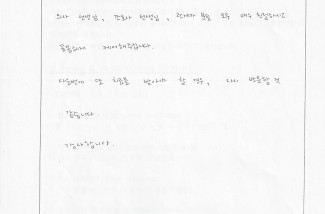 의사 선생님, 간호사 선생님, 관계자 분들 모두 매우 친절하시고
꼼꼼하게 케어해주십니다.
다음번에 또 치료를 받아야 할 경우, 다시 방문할 것
같습니다.
감사합니다.